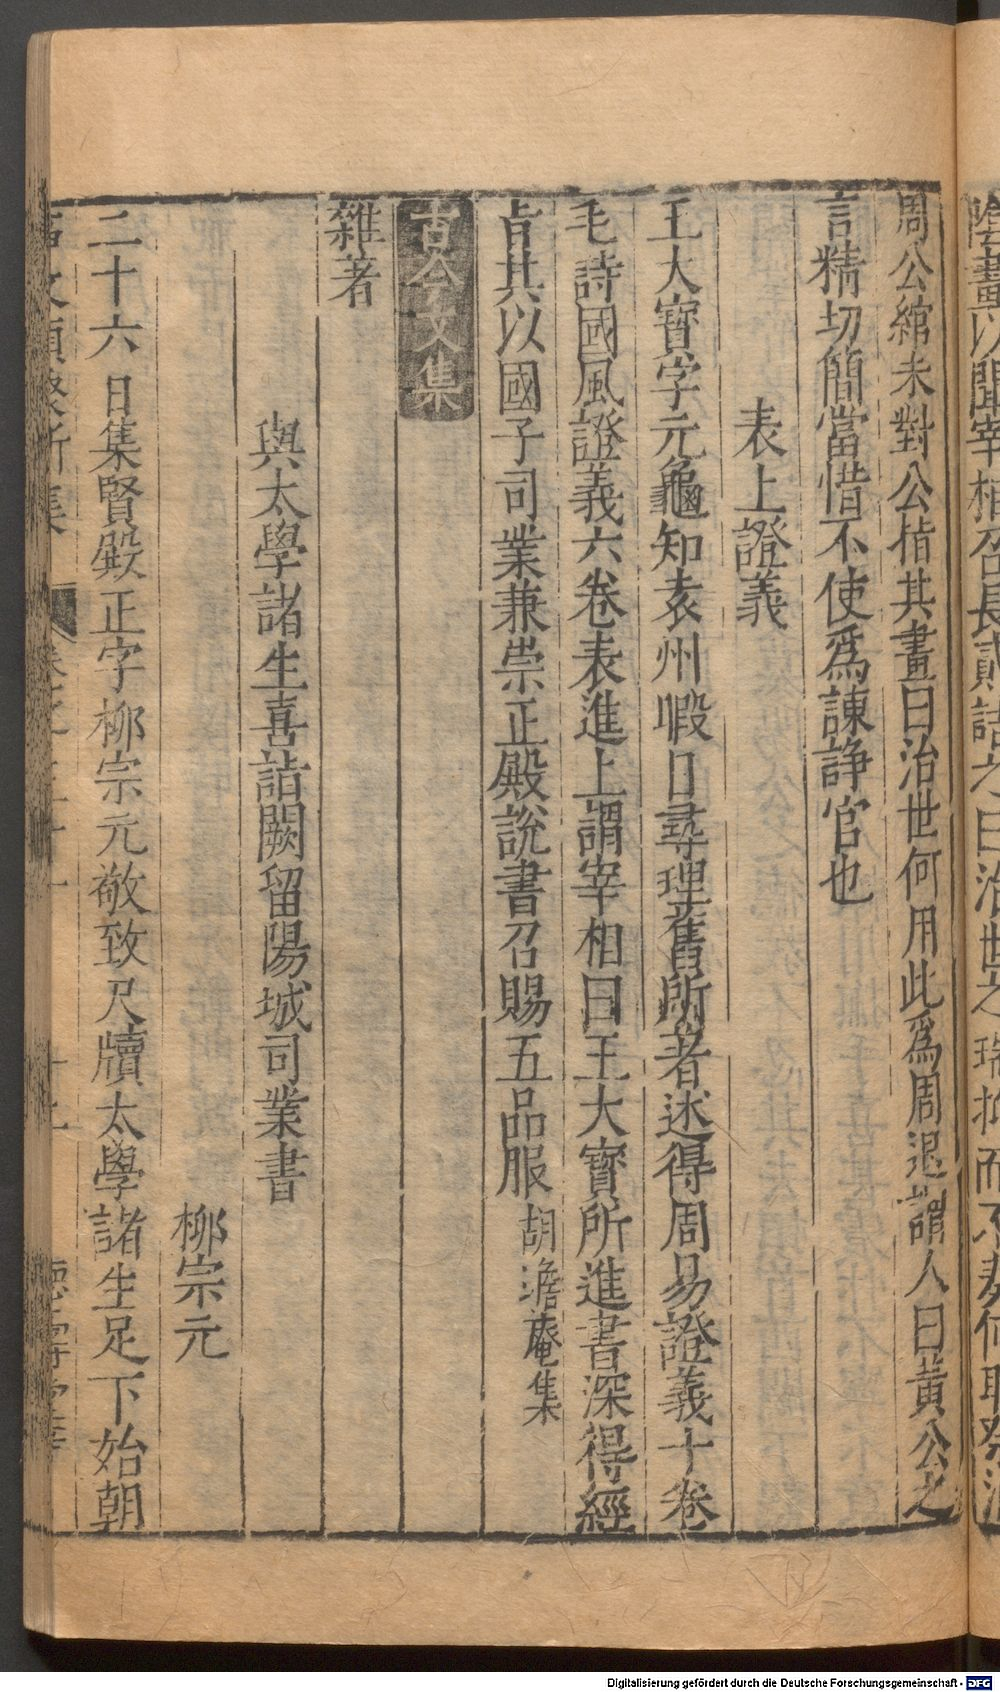 陰晝以聞宰相召長貳詰之曰治世之瑞抑而不奏何耶祭酒
周公綰未對公楷其畫曰治世何用此爲周退謂人曰黃公之
言精切簡當惜不使爲諫諍官也
表上證義
王大寶字元龜知袁州暇日尋理舊所著述得周易證義十卷
毛詩國風證義六卷表進上謂宰相曰王大寶所進書深得經
㫖其以國子司業兼崇正殿說書召賜五品服 胡澹庵集
古今文集
雜著
與太學諸生喜詣闕留陽城司業書
柳宗元
二十六日集賢殿正字柳宗元敬致尺牘太學諸生足下始朝
德壽堂
Digitalisierung gefördert durch die Deutsche Forschungsgemeinschaft - DFG